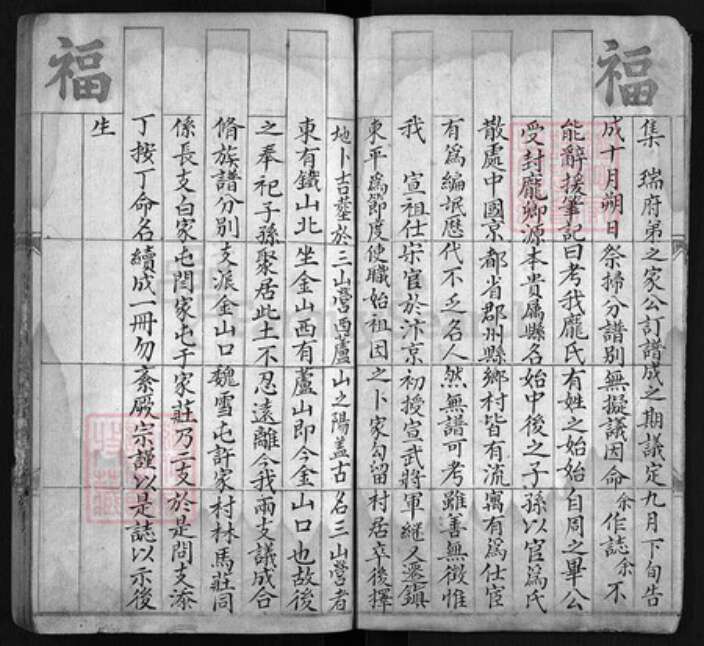 福
集 瑞府弟之家公訂譜成之期議定九月下旬告
成十月朔日祭掃分譜別無擬議因命余作誌余不
能辭援筆記曰考我龐氏有姓之始始自周之畢公
受封龐鄉源本貴屬縣名始中後之子孫以官為氏
散處中國京都省郡州縣鄉村皆有流寓有為仕宦
有為編氓歷代不乏名人然無譜可考雖善無徵惟
我 宣祖仕宋官於汴京初授宣武將軍繼又遷鎮
東平為節度使職始祖因之卜家勾留村居卒後擇
福
地卜吉塟於三山營西蘆山之陽蓋古名三山營者
東有鐵山北坐金山西有蘆山即今金山口也故後
之奉祀子孫聚居此土不忍遠離今我兩支議成合
脩族譜分別支派金山口魏雪屯許家村林馬莊同
係長支白家屯閆家屯于家莊乃二支於是問支添
丁按丁命名續成一冊勿紊厥宗謹以是誌以示後
生